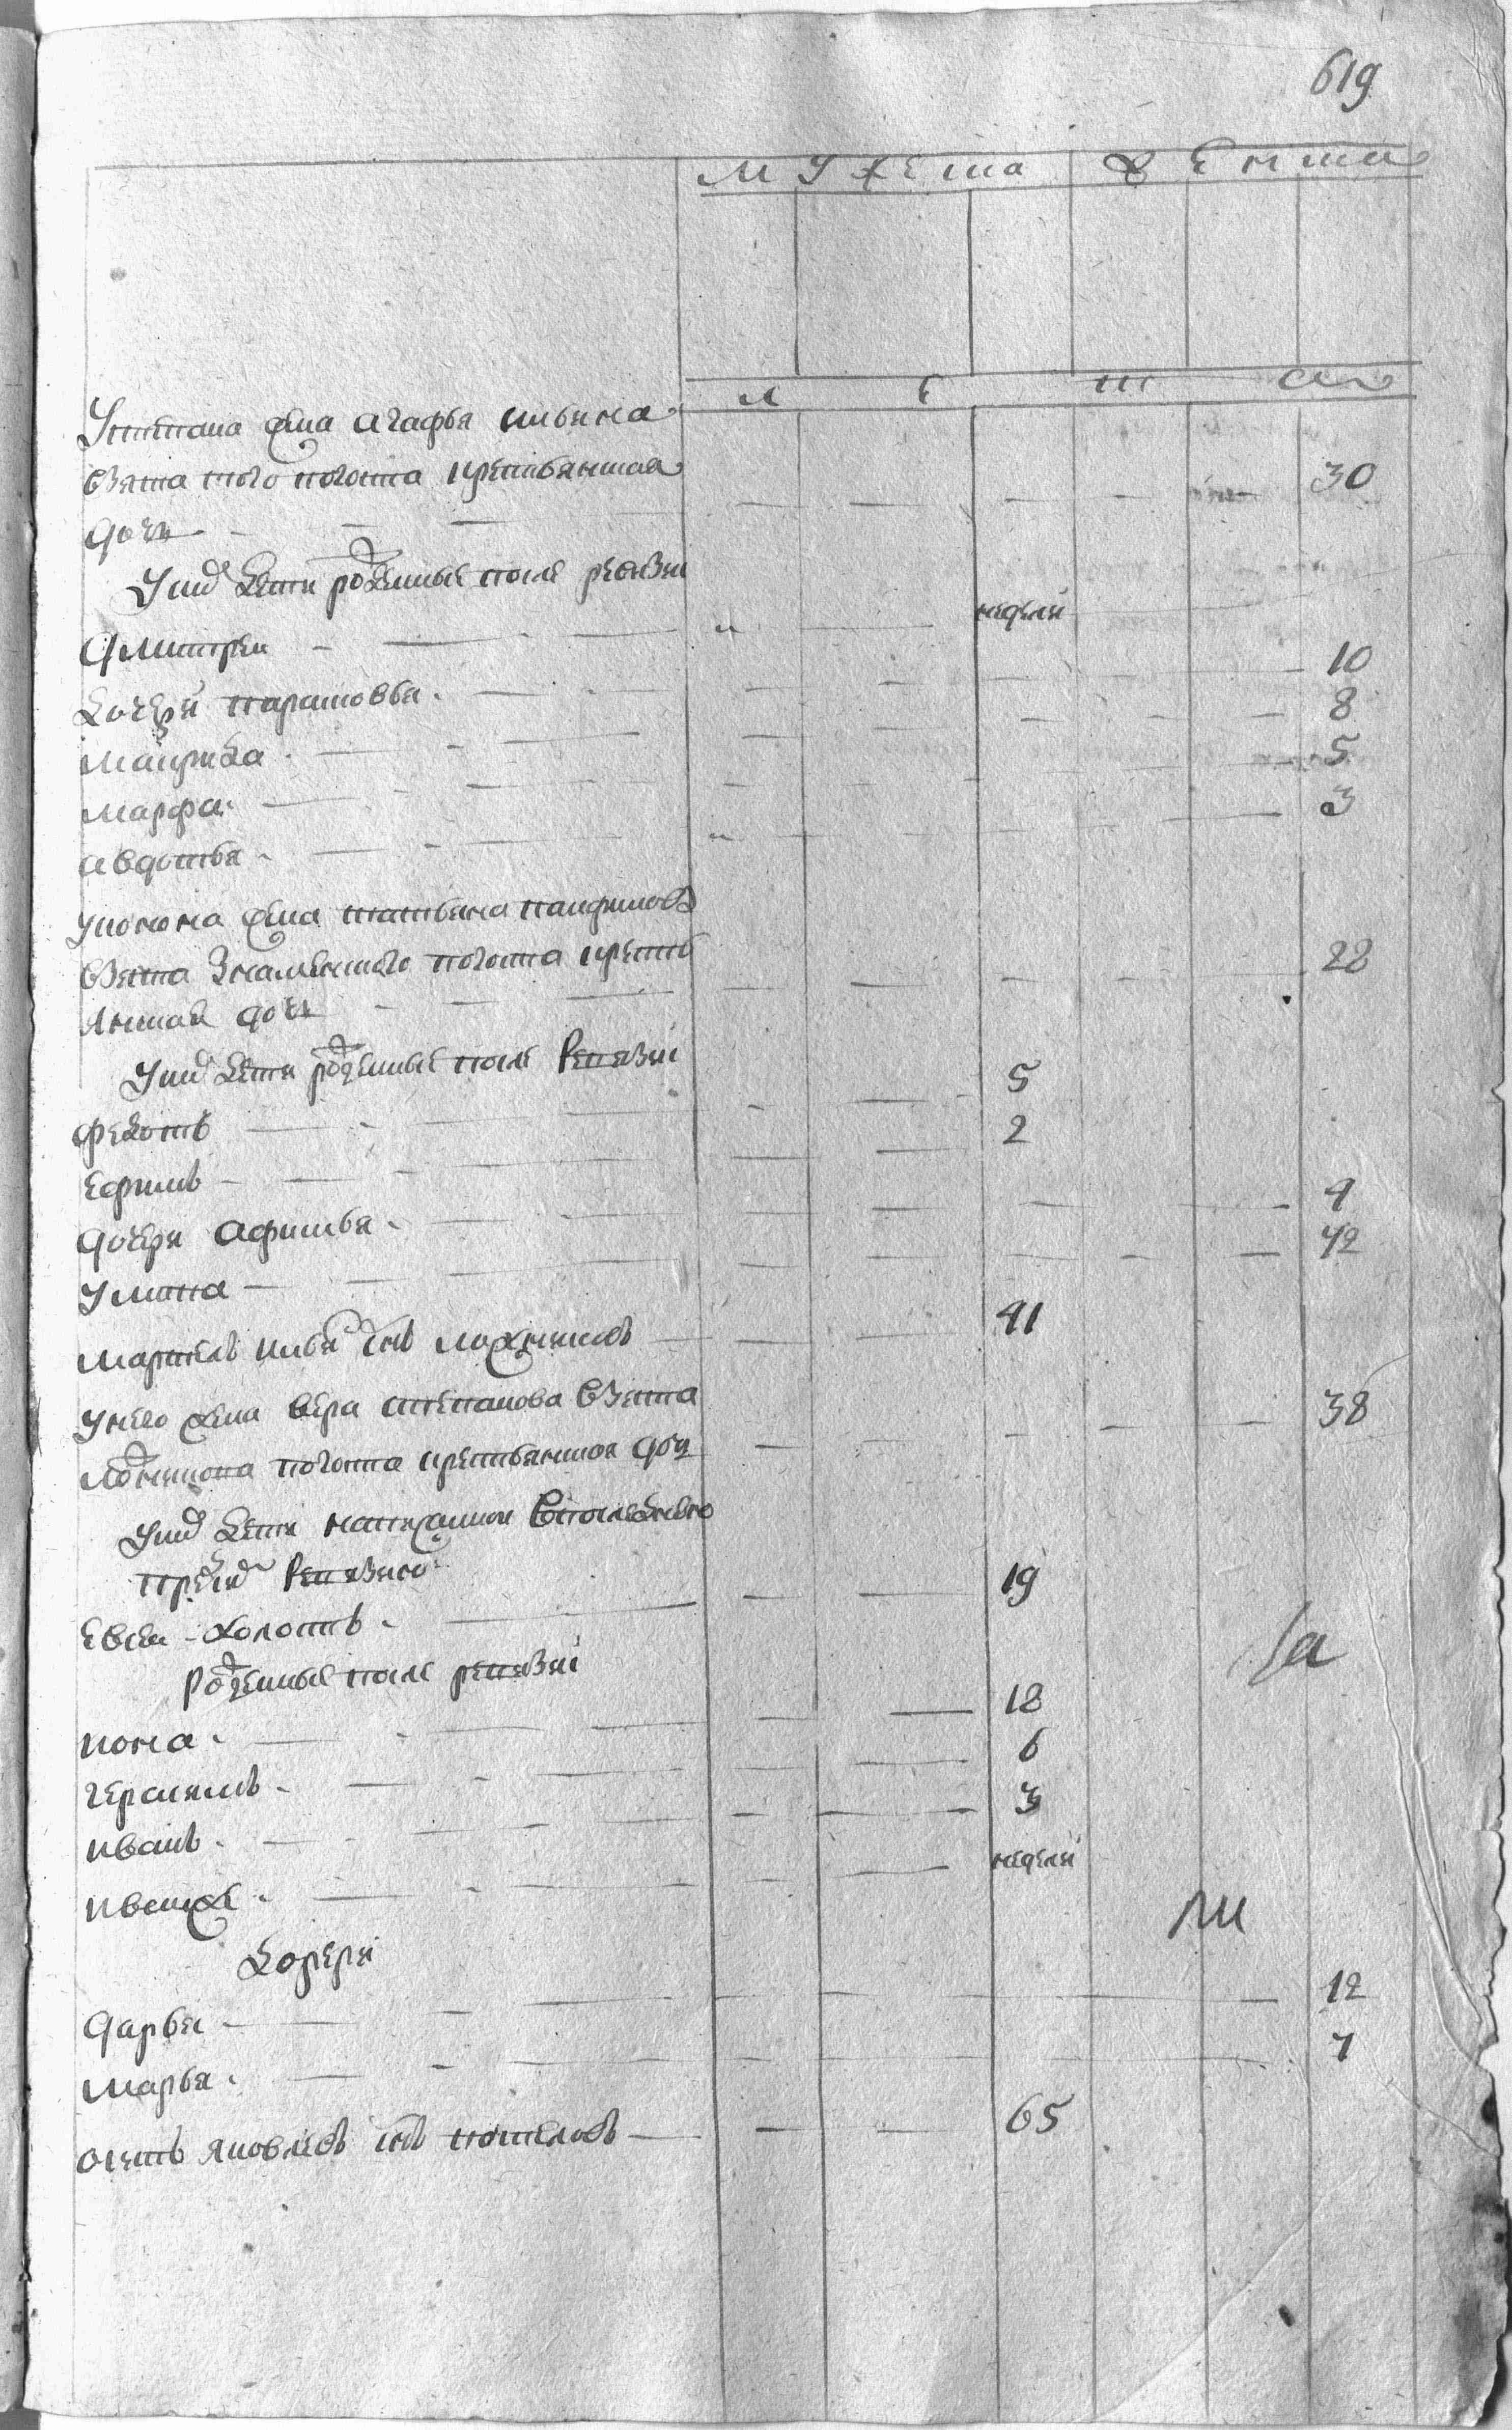 619
мужеска женска
л е т а
У степана жена агафья ильина
взята того погоста крестьянская
дочь 30
У них дети рожденные после ревизии
дмитреи недели
дочери парасковья 10
маурида 8
марфа 5
авдотья 3
У конона жена татьяна панфилова
взята погоста кресть
янская дочь 28
У них дети рожденные после ревизии
федотъ 5
ефимъ 2
дочери афимья 4
Улита
41
У него жена вера степанова взята
погоста крестьянская дочь 38
У них дети написанноя в последнею
пред сим ревизию
евсеи холостъ 19
Рожденные после ревизии
кона 18
герасимъ 6
иванъ 3
иван же недели
дочери
дарья 12
марья 7
осипъ яковлевъ сынъ 65